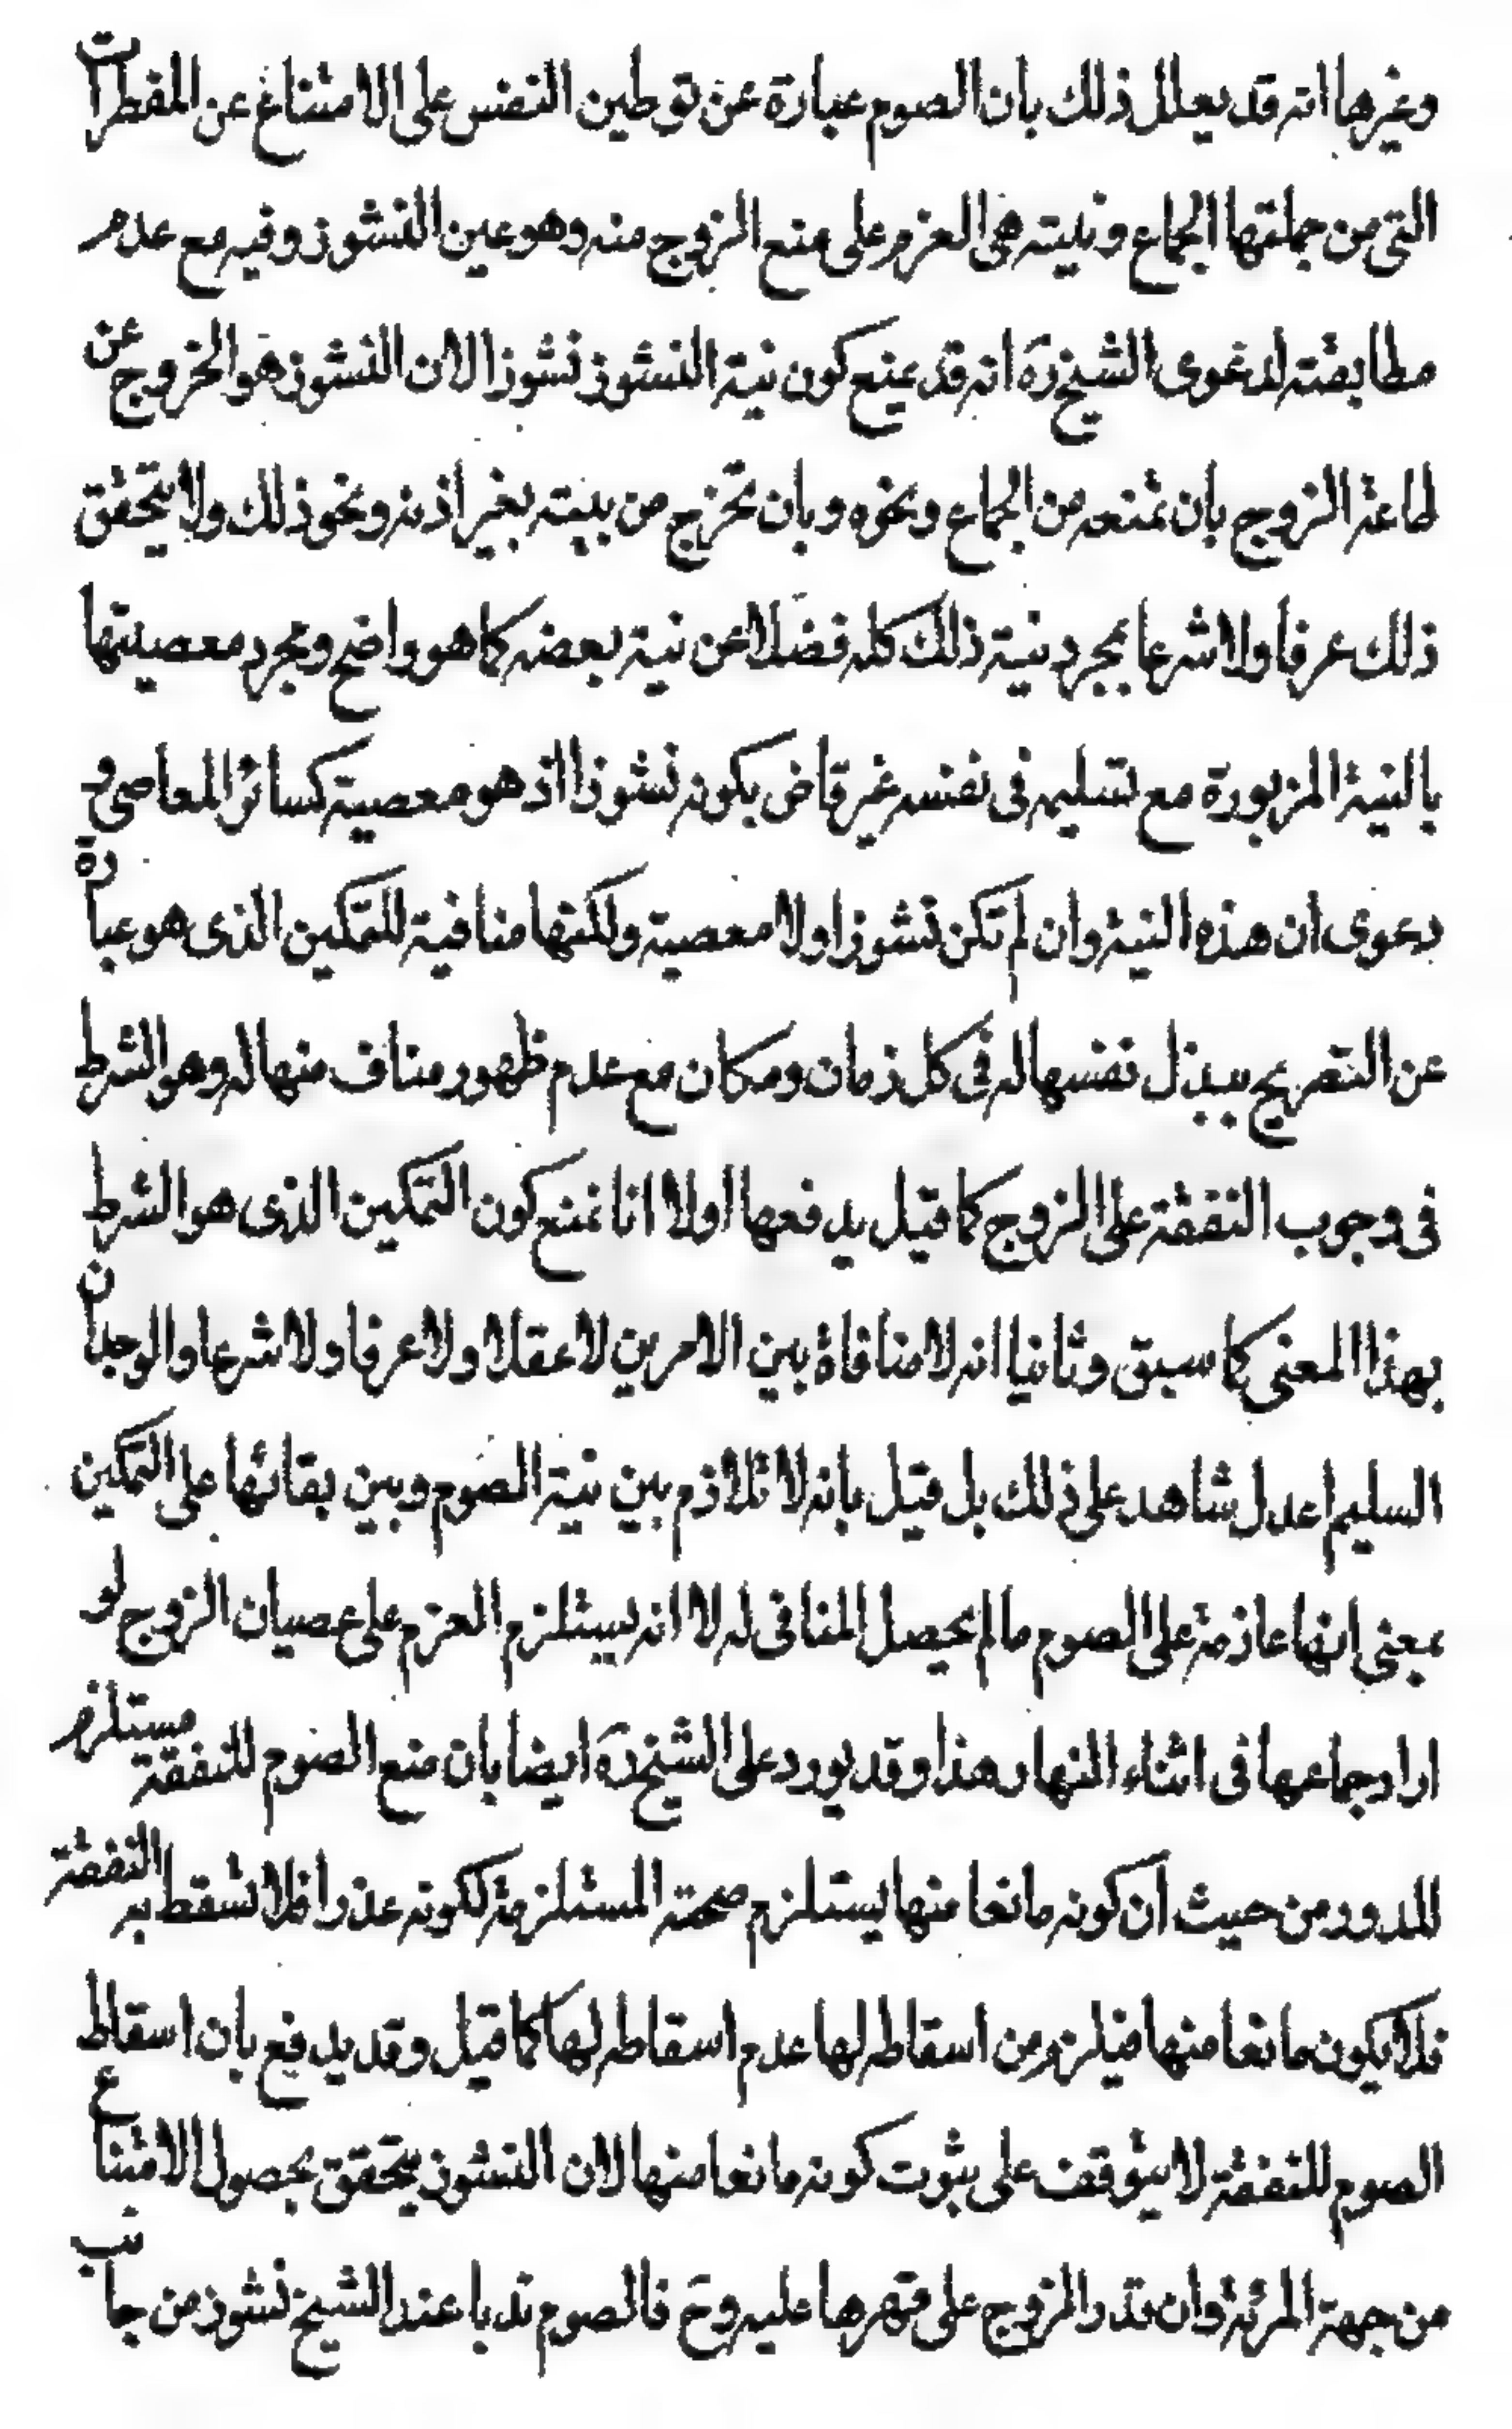 وغيرها انه قد يعلل ذلك بان الصوم عبارة عن توطين النفس على الامتناع عن المفطرات
التى من جملتها الجماع ونيته هى العزم على منع الزوج منه وهو عين النشوز وفيه مع عدم
مطابقته لدعوى الشيخ ره انه قد يمنع كون نية النشوز نشوزا لان النشوز هو الخروج عن
طاعة الزوج بان تمنعه من الجماع ونحوه وبان تخرج من بيته بغير اذنه ونحو ذلك ولا يتحقق
ذلك عرفا ولا شرعا بمجرد نية ذلك كله فضلا عن نية بعضه كما هو واضح ومجرد معصيتها
بالنية المزبورة مع تسليمه فى نفسه غير قاض بكونه نشوزا اذ هو معصية كسائر المعاصى و
دعوى ان هذه النية وان لم تكن نشوزا ولا معصية ولكنها منافية للتمكين الذى هو عبارة
عن التصريح ببذل نفسها له فى كل زمان ومكان مع عدم ظهور مناف منها له وهو الشرط
فى وجوب النفقة على الزوج كما قيل يدفعها اولا انا نمنع كون التمكين الذى هو الشرط
بهذا المعنى كما سبق وثانيا انه لا منافاة بين الامرين لا عقلا ولا عرفا ولا شرعا والوجدان
السليم اعدل شاهد على ذلك بل قيل بانه لا تلازم بين نية الصوم وبين بقائها على التمكين
بمعنى انها عازمة على الصوم ما لم يحصل المنافى له لا انه يستلزم العزم على عصيان الزوج لو
اراد جماعها فى اثناء النهار هذا وقد يورد على الشيخ ره ايضا بان منع الصوم للنفقة مستلزم
للدور من حيث ان كونه مانعا منها يستلزم صحته المستلزمة لكونه عذرا فلا تسقط به النفقة
فلا يكون مانعا منها فيلزم من اسقاطه لها عدم اسقاطه لها كما قيل وقد يدفع بان اسقاط
الصوم للنفقة لا يتوقف على ثبوت كونه مانعا منها لان النشوز يتحقق بحصول الامتناع
من جهة المرئة وان قدر الزوج على قهرها عليه وح فالصوم ندبا عند الشيخ نشوز من جانب